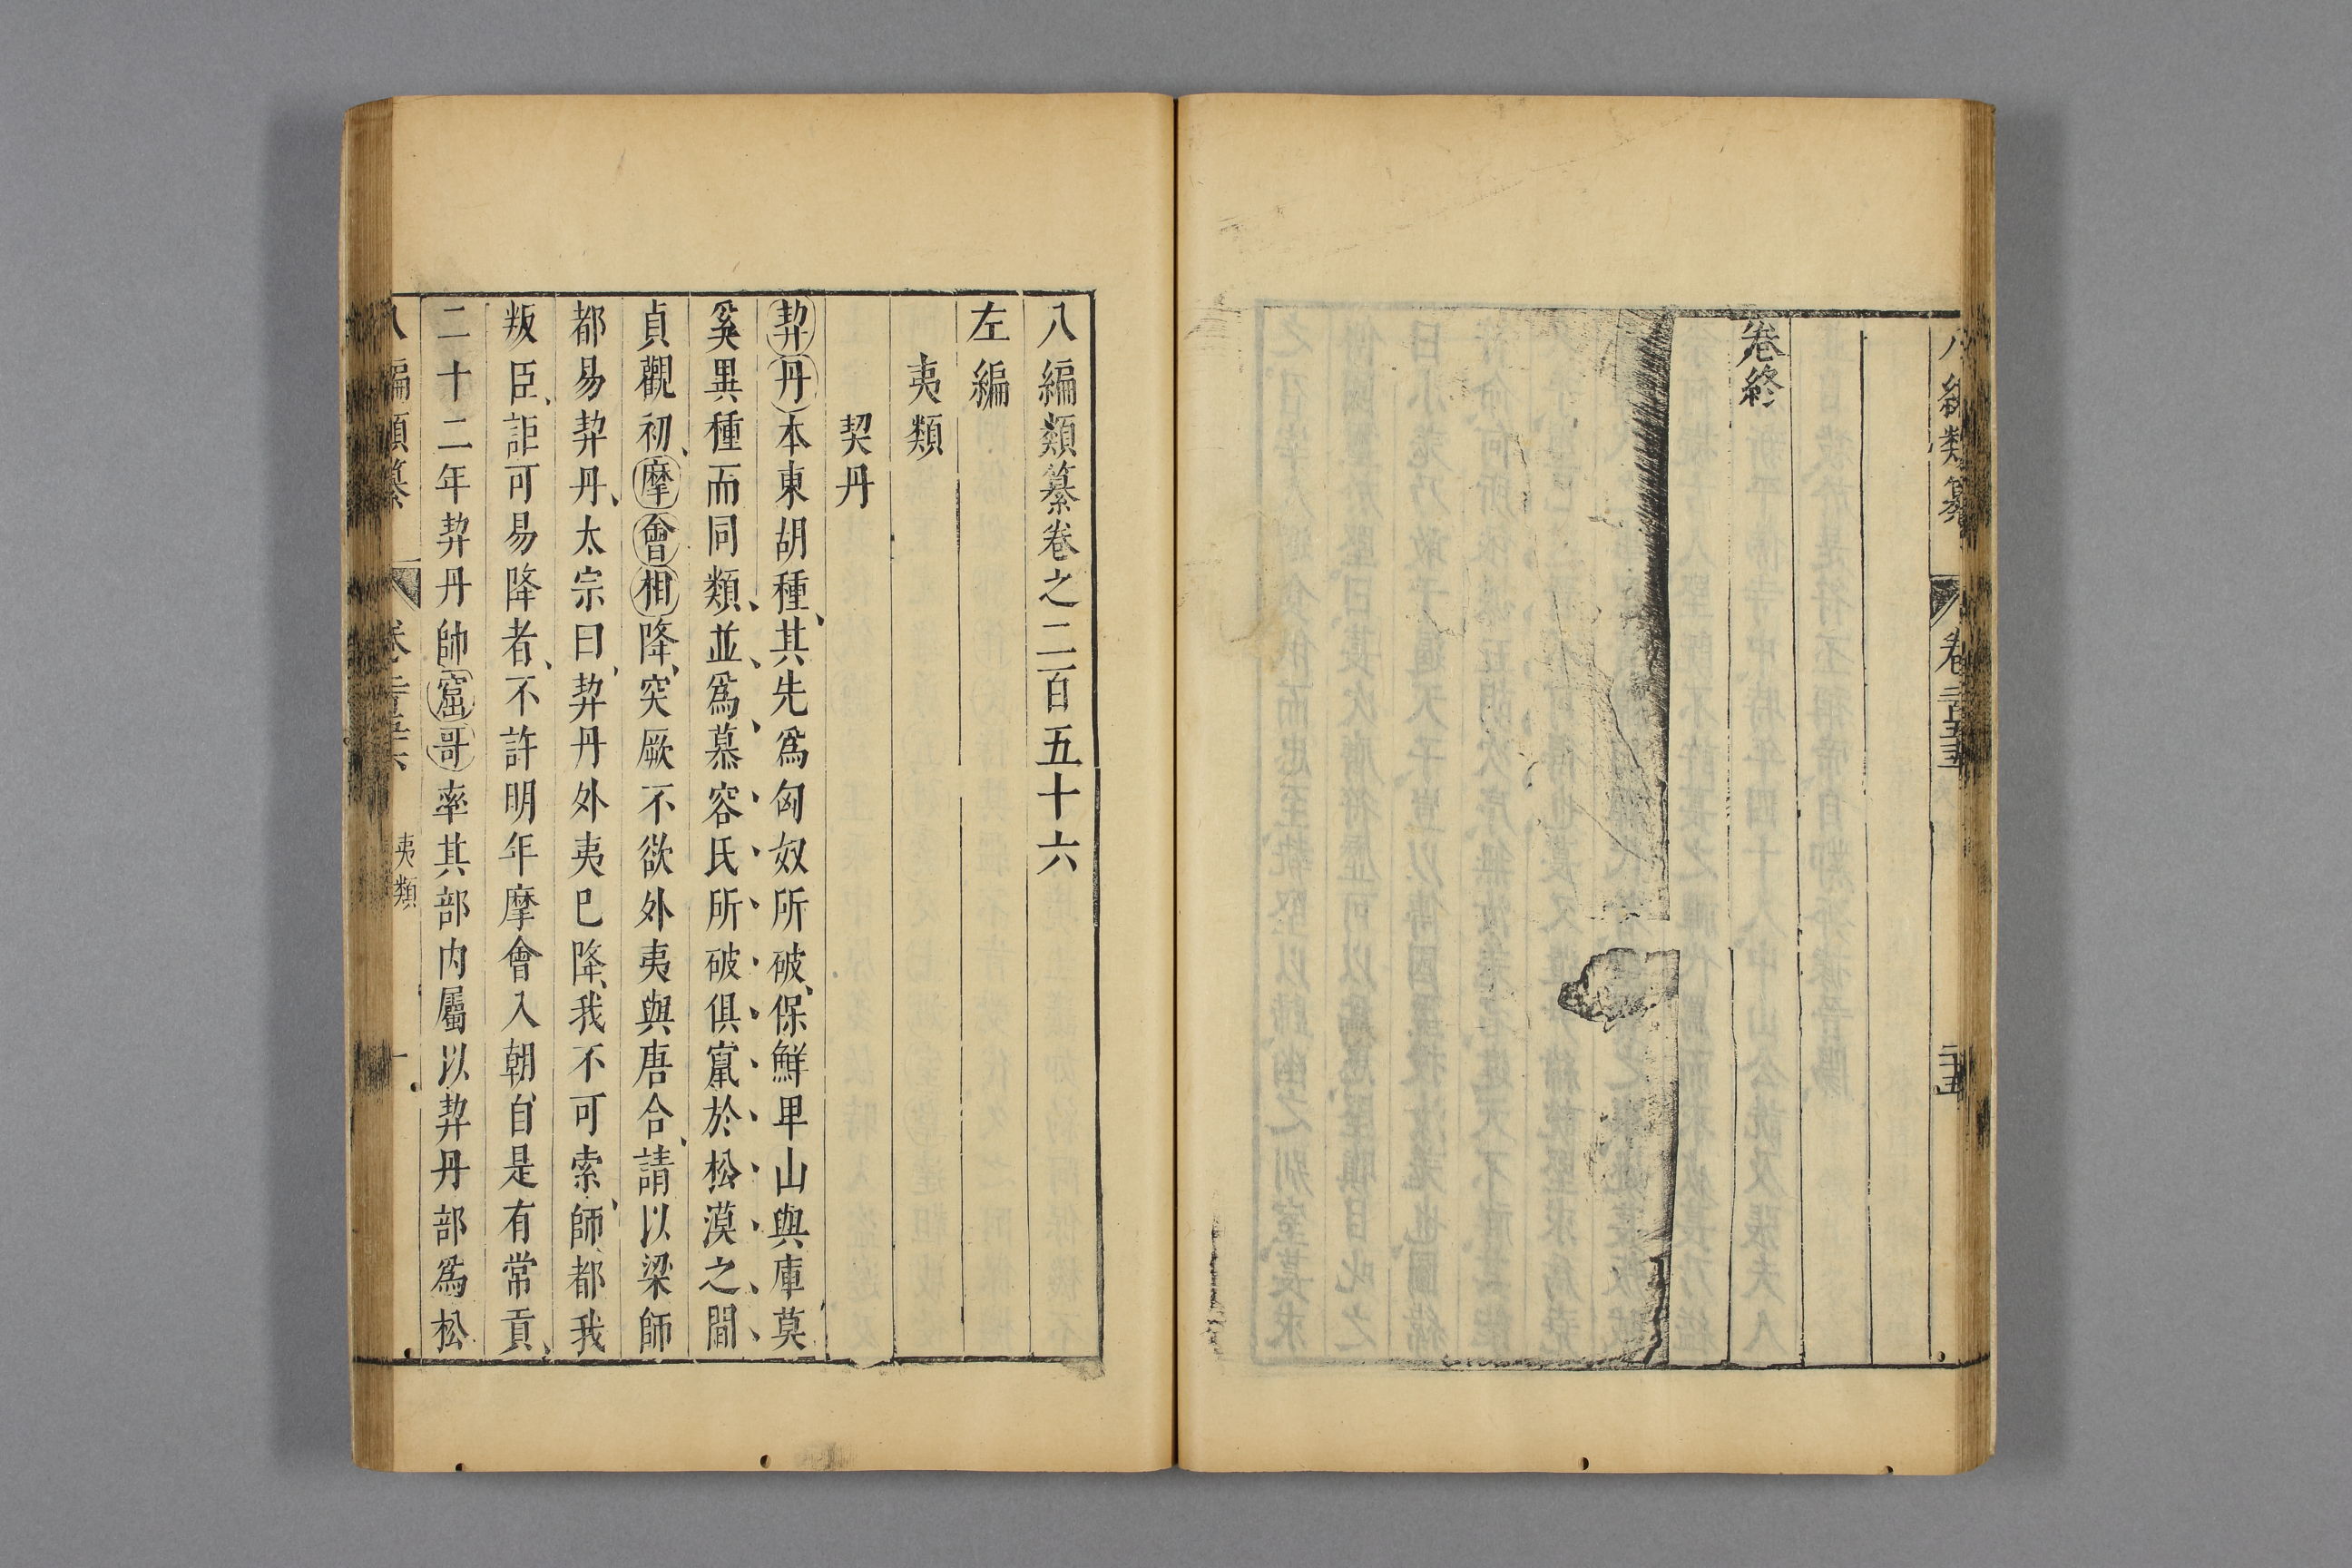 八編類纂
卷二百五十五
二十五
卷終
八編類纂卷之二百五十六
左編
夷類
契丹
契丹本東胡種其先爲匈奴所破保鮮卑山與庫莫
奚異種而同類並爲慕容氏所破俱竄於松漠之間
貞觀初摩會相降突厥不欲外夷與唐合請以梁師
都易契丹太宗曰契丹外夷已降我不可索師都我
叛臣詎可易降者不許明年摩會入朝自是有常貢
二十二年契丹帥窟哥率其部内屬以契丹部爲松
八編類纂
卷二百五十六
夷類
一